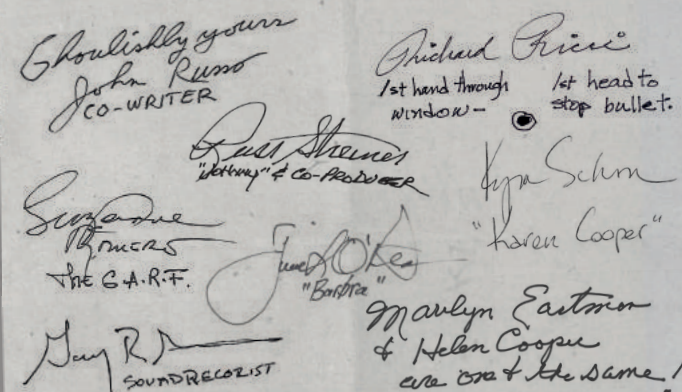 Ghoulishly yours
John Russo
CO-WRITER
Richard Ricci
1st hand through window -
1st head to stop bullet.
Russ Streiner
"Johnny" & CO-PRODUCER
Kyra Schon
"Karen Cooper"
Suzanne
Romero
The G.A.R.F.
Judith O'Dea
"Barbra"
Marilyn Eastman
& Helen Cooper
are one & the same!
Gary R
SOUNDRECORIST